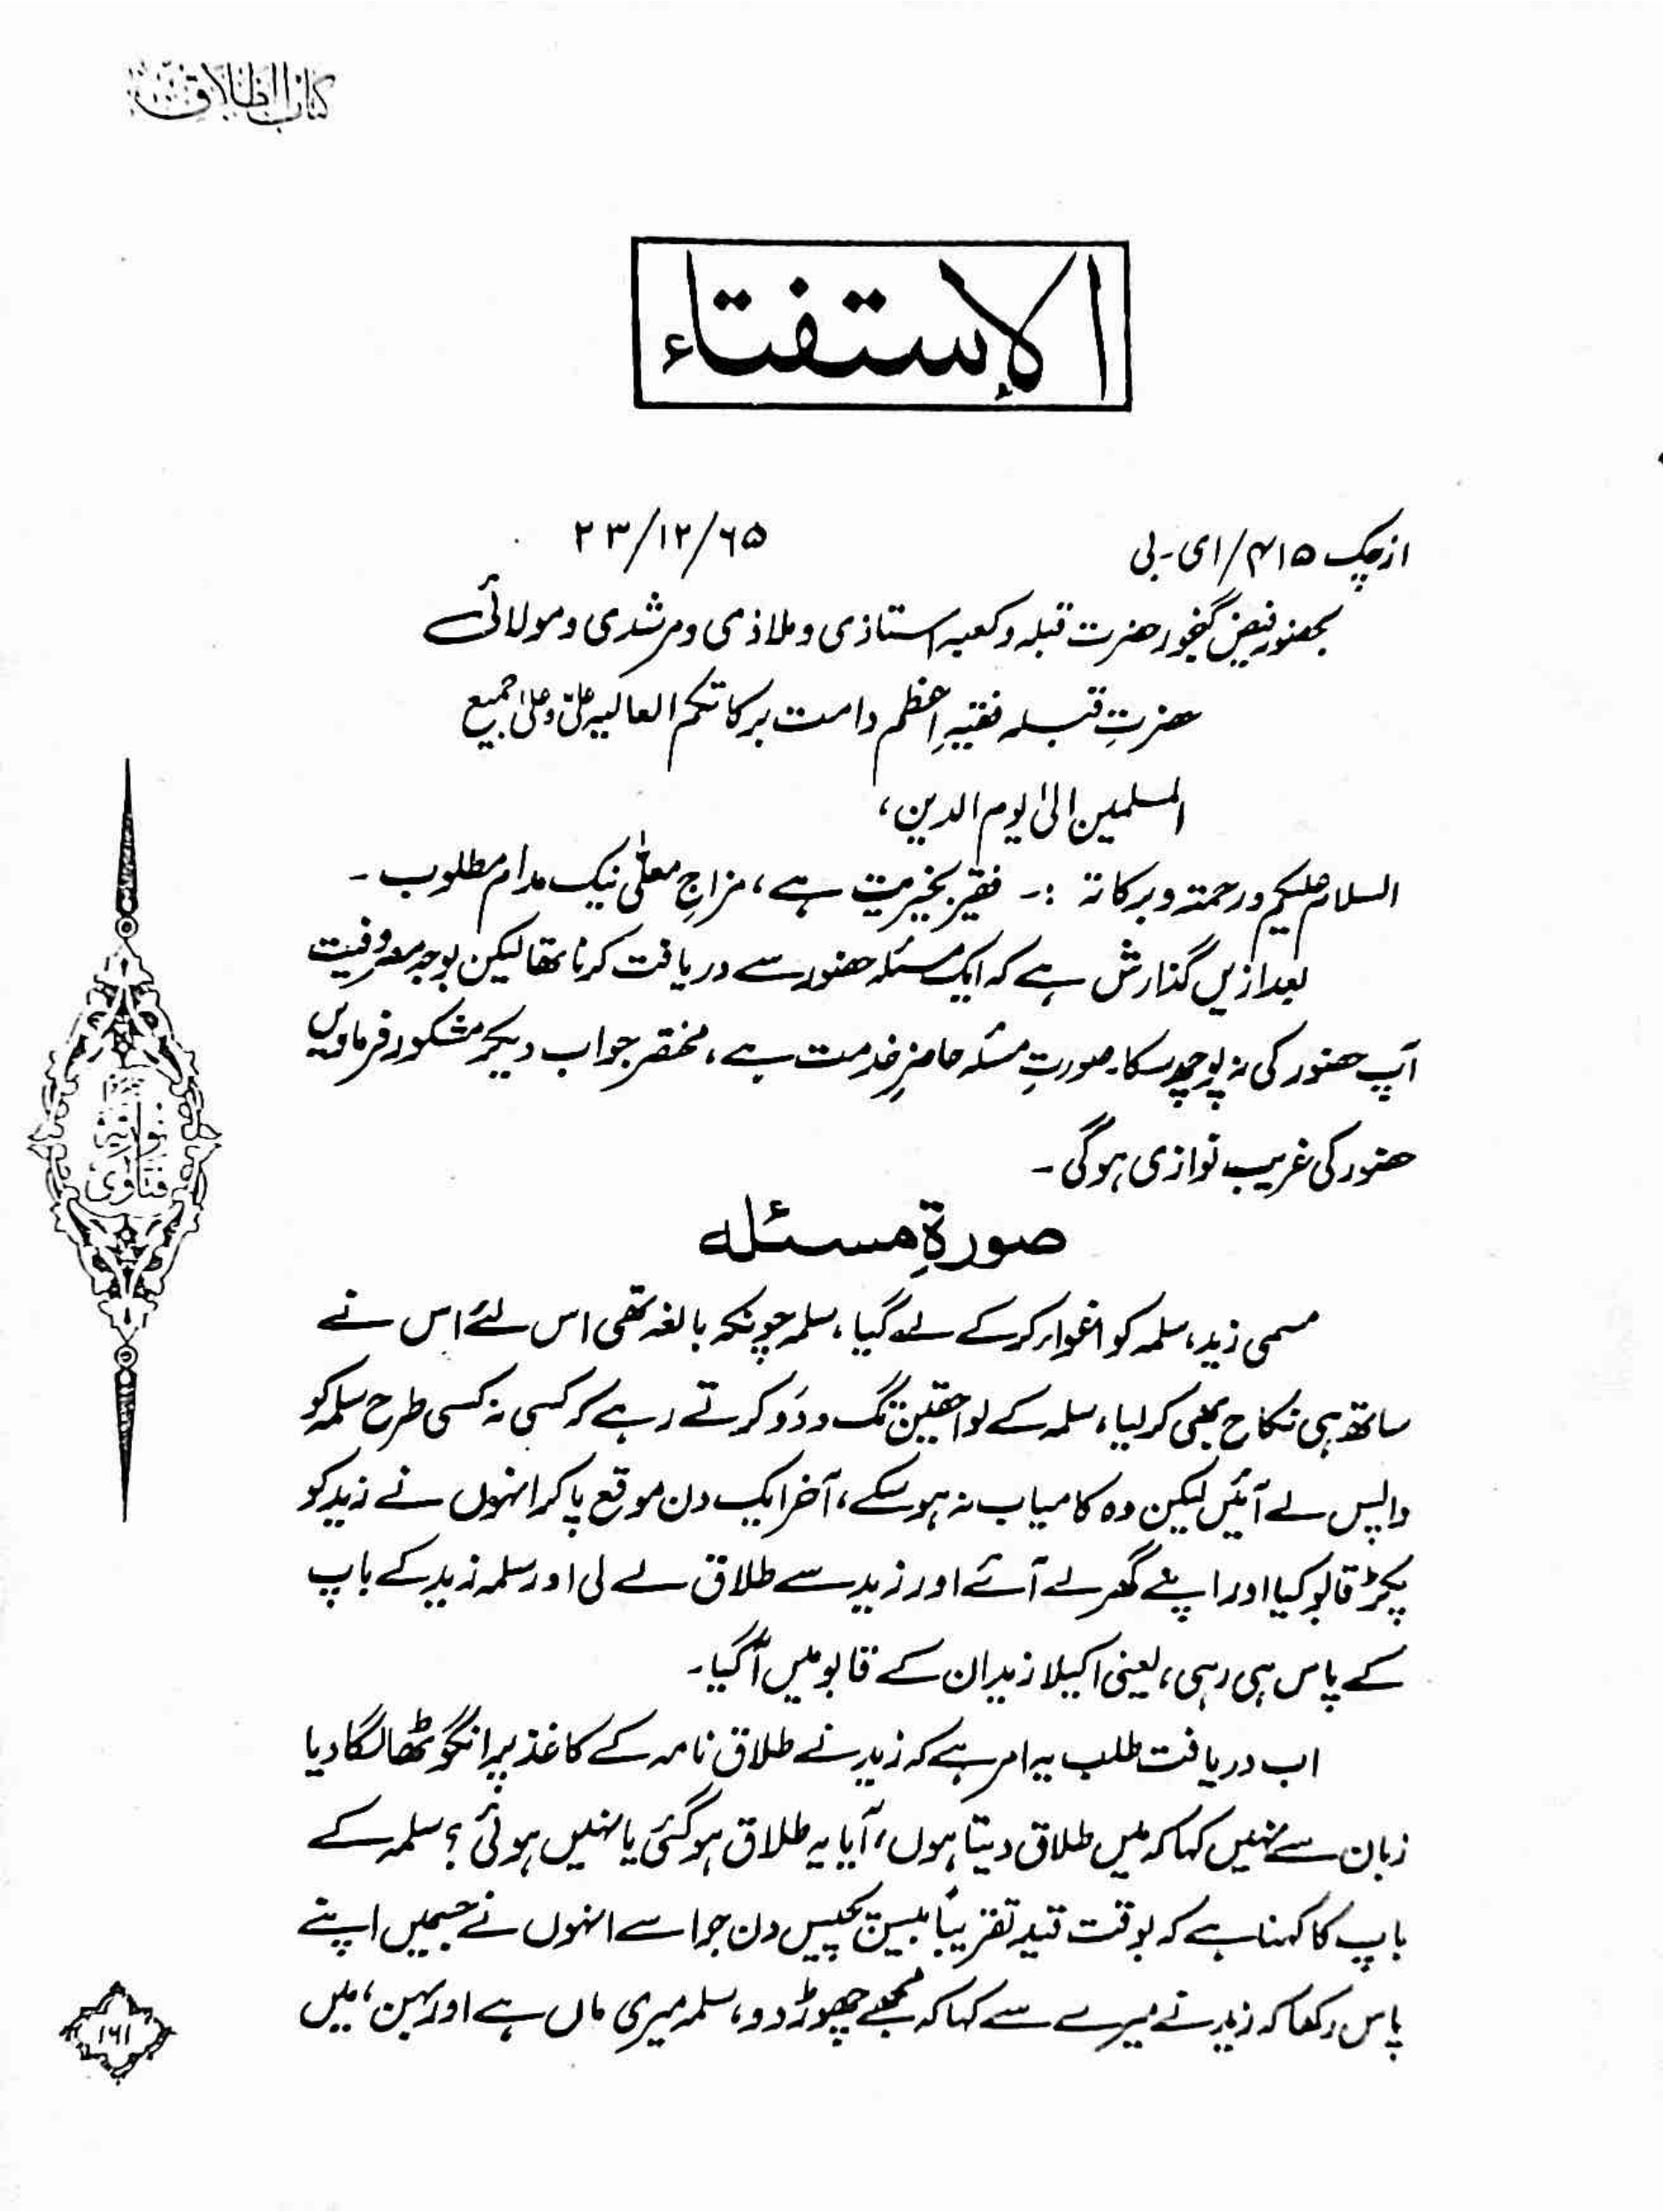 کتاب الطلاق
الإستفتاء
از چک ۴۱۵/ای-بی
۲۳/۱۲/۶۵
بحضور فیض گنجور حضرت قبلہ و کعبہ استاذی و ملاذی و مرشدی و مولائی
حضرتِ قبلہ فقیہِ اعظم دامت برکاتکم العالیہ علیّ وعلیٰ جمیع
المسلمین الیٰ یوم الدین،
السلام علیکم ورحمتہ وبرکاتہ :۔ فقیر بخیریت ہے، مزاجِ معلّٰی نیک مدام مطلوب۔
بعد ازیں گذارش ہے کہ ایک مسئلہ حضور سے دریافت کرنا تھا لیکن بوجہ مصروفیت
آپ حضور کی نہ پوچھ سکا۔ صورتِ مسئلہ حاضرِ خدمت ہے، مختصر جواب دیکر مشکور فرماویں
حضور کی غریب نوازی ہوگی۔
صورۃِ مسئلہ
مسمی زید، سلمہ کو اغوار کرکے لے گیا، سلمہ چونکہ بالغہ تھی اس لئے اس نے
ساتھ ہی نکاح بھی کرلیا، سلمہ کے لواحقین تگ و دَو کرتے رہے کہ کسی نہ کسی طرح سلمہ کو
واپس لے آئیں لیکن وہ کامیاب نہ ہوسکے، آخر ایک دن موقع پا کر انہوں نے زید کو
پکڑ قابو کیا اور اپنے گھر لے آئے اور زید سے طلاق لے لی اور سلمہ زید کے باپ
کے پاس ہی رہی، یعنی اکیلا زید ان کے قابو میں آگیا۔
اب دریافت طلب یہ امر ہے کہ زید نے طلاق نامہ کے کاغذ پر انگوٹھا لگا دیا
زبان سے نہیں کہا کہ میں طلاق دیتا ہوں، آیا یہ طلاق ہوگئی یا نہیں ہوئی؟ سلمہ کے
باپ کا کہنا ہے کہ بوقت قید تقریباً بیس پچیس دن جو اسے انہوں نے حبس میں اپنے
پاس رکھا کہ زید نے میرے سے کہا کہ مجھے چھوڑ دو، سلمہ میری ماں ہے اور بہن، میں
فتاویٰ نوریہ
۱۶۱